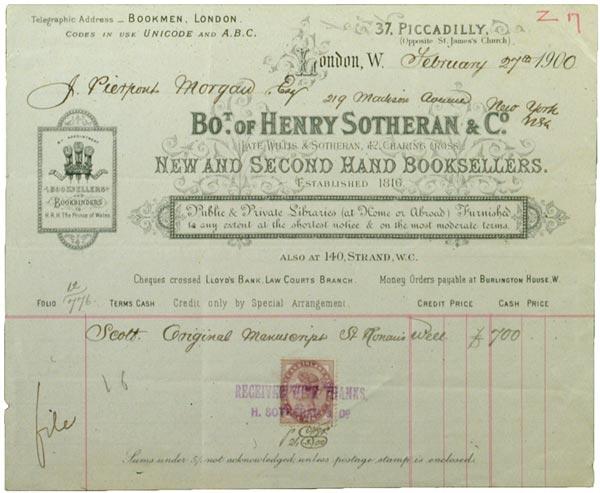 Telegraphic Address _ BOOKMEN, LONDON.
CODES IN USE UNICODE AND A.B.C.
37, PICCADILLY,
(Opposite St. James's Church)
London, W. February 27th 1900
J. Pierpont Morgan Esq
219 Madison Avenue New York
USA
BOT. OF HENRY SOTHERAN & CO.
LATE WILLIS & SOTHERAN, 42, CHARING CROSS.
NEW AND SECOND HAND BOOKSELLERS.
ESTABLISHED 1816.
BY APPOINTMENT
BOOKSELLERS
AND
BOOKBINDERS
TO
H.R.H. The Prince of Wales
Public & Private Libraries (at Home or Abroad) Furnished
to any extent at the shortest notice & on the most moderate terms.
ALSO AT 140, STRAND, W.C.
Cheques crossed LLOYD'S BANK, LAW COURTS BRANCH. Money Orders payable at BURLINGTON HOUSE, W.
FOLIO 12/776 TERMS CASH Credit only by Special Arrangement. CREDIT PRICE CASH PRICE
Scott. Original Manuscript St Ronan's Well £700
16
file
RECEIVED WITH THANKS,
H. SOTHERAN & CO
Sums under 5/- not acknowledged, unless postage stamp is enclosed.